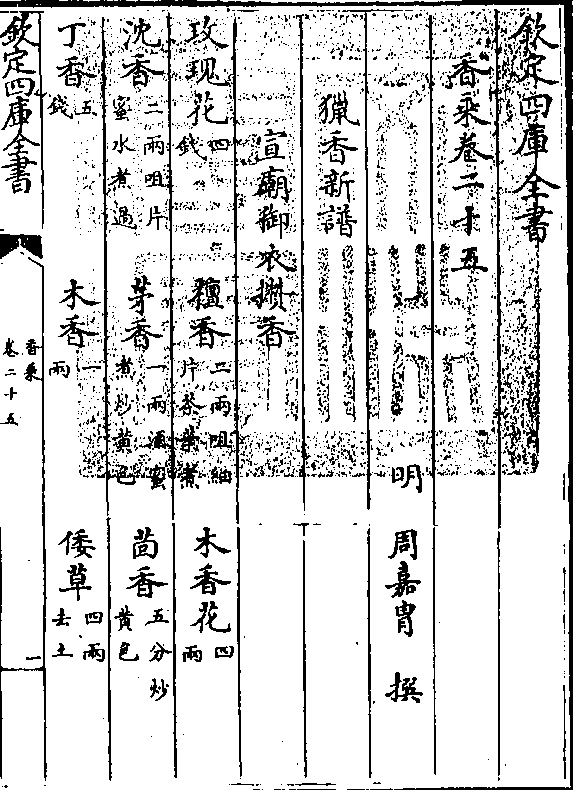 欽定四庫全書
香乘卷二十五
明 周嘉胄 撰
獵香新譜
宣廟御衣攢香
玫瑰花四錢 檀香二兩咀細片茶葉煮 木香花四兩
沈香二兩咀片蜜水煮過 茅香一兩酒蜜煮炒黄色 茴香五分炒黄色
丁香五錢 木香一兩 倭草四兩去土
欽定四庫全書
香乘
卷二十五
一